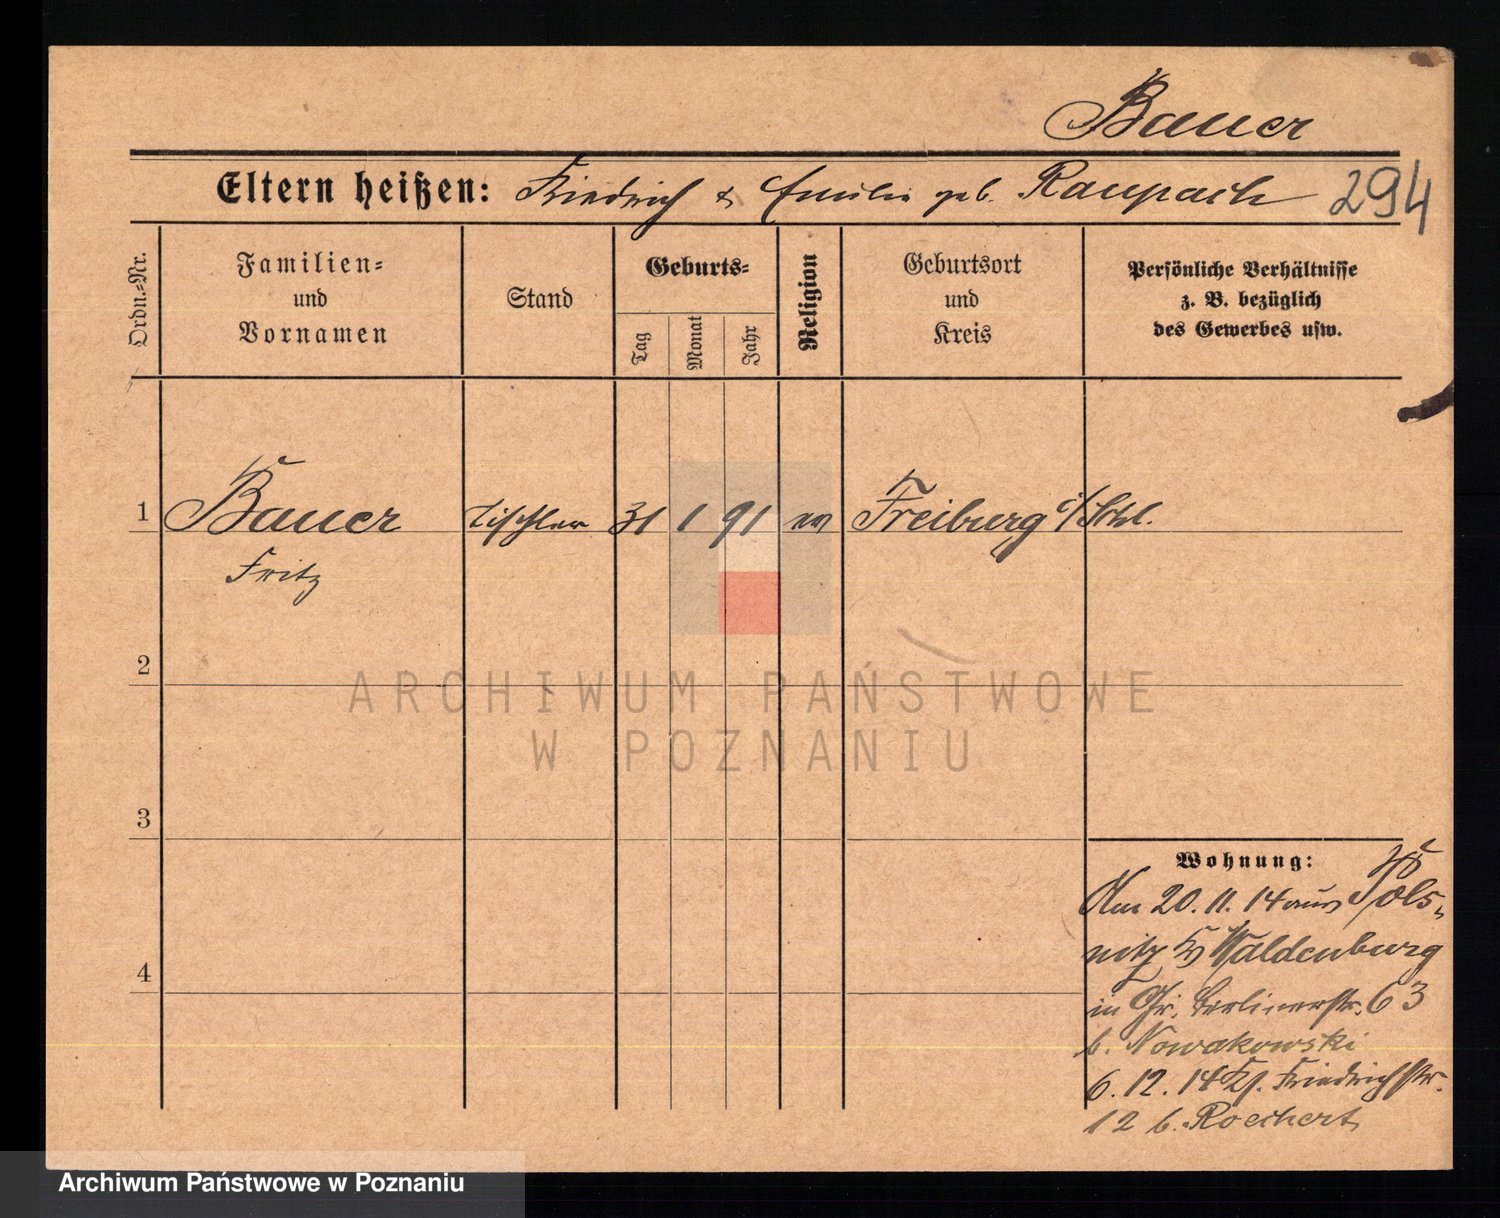 Bauer
Eltern heißen: Friedrich & Emilie geb. Raupach 294
Ordn.-Nr.
Familien-
und
Vornamen
Stand
Geburts-
Tag
Monat
Jahr
Religion
Geburtsort
und
Kreis
Persönliche Verhältnisse
z. B. bezüglich
des Gewerbes usw.
1 Bauer Tischler 31 1 91 ev Freiburg i/Schl.
Fritz
2
ARCHIWUM PAŃSTWOWE
W POZNANIU
3
Wohnung:
Am 20. 11. 14 aus Pols-
nitz Kr Waldenburg
4
in Gr. Berlinerstr. 63
b. Nowakowski
6. 12. 14 Friedrichstr.
12 b. Roechert
Archiwum Państwowe w Poznaniu